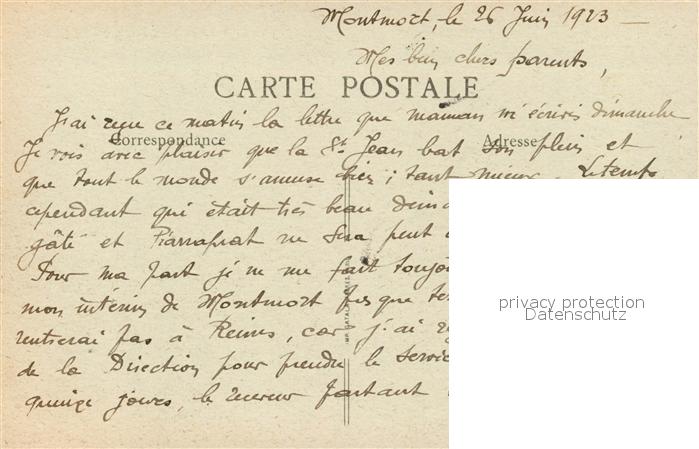 Montmort, le 26 Juin 1923 —
Mes bien chers parents,
CARTE POSTALE
J'ai reçu ce matin la lettre que maman m'écrivis dimanche
Correspondance
Adresse
Je vois avec plaisir que la St Jean bat son plein et
que tout le monde s'amuse bien ; tant mieux. Le temps
cependant qui était très beau
gâté et ne sera peut
Pour ma part je ne me fait toujo
mon intérim de Montmort que
rentrerai pas à Reims, car j'ai
de la Direction pour prendre le servic
quinze jours, le receveur partant
privacy protection
Datenschutz